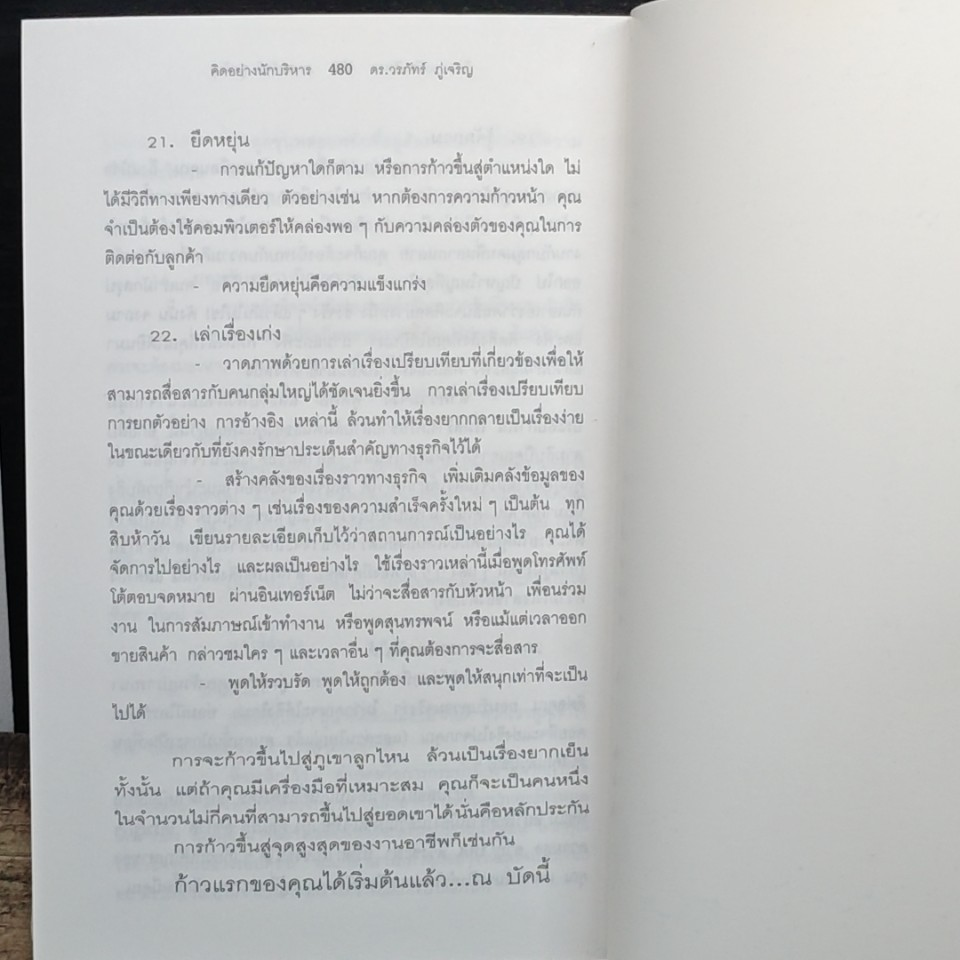 คิดอย่างนักบริหาร 480 ดร.วรภัทร์ ภู่เจริญ
21. ยืดหยุ่น
- การแก้ปัญหาใดก็ตาม หรือการก้าวขึ้นสู่ตำแหน่งใด ไม่
ได้มีวิถีทางเพียงทางเดียว ตัวอย่างเช่น หากต้องการความก้าวหน้า คุณ
จำเป็นต้องใช้คอมพิวเตอร์ให้คล่องพอ ๆ กับความคล่องตัวของคุณในการ
ติดต่อกับลูกค้า
- ความยืดหยุ่นคือความแข็งแกร่ง
22. เล่าเรื่องเก่ง
- วาดภาพด้วยการเล่าเรื่องเปรียบเทียบที่เกี่ยวข้องเพื่อให้
สามารถสื่อสารกับคนกลุ่มใหญ่ได้ชัดเจนยิ่งขึ้น การเล่าเรื่องเปรียบเทียบ
การยกตัวอย่าง การอ้างอิง เหล่านี้ ล้วนทำให้เรื่องยากกลายเป็นเรื่องง่าย
ในขณะเดียวกับที่ยังคงรักษาประเด็นสำคัญทางธุรกิจไว้ได้
- สร้างคลังของเรื่องราวทางธุรกิจ เพิ่มเติมคลังข้อมูลของ
คุณด้วยเรื่องราวต่าง ๆ เช่นเรื่องของความสำเร็จครั้งใหม่ ๆ เป็นต้น ทุก
สิบห้าวัน เขียนรายละเอียดเก็บไว้ว่าสถานการณ์เป็นอย่างไร คุณได้
จัดการไปอย่างไร และผลเป็นอย่างไร ใช้เรื่องราวเหล่านี้เมื่อพูดโทรศัพท์
โต้ตอบจดหมาย ผ่านอินเทอร์เน็ต ไม่ว่าจะสื่อสารกับหัวหน้า เพื่อนร่วม
งาน ในการสัมภาษณ์เข้าทำงาน หรือพูดสุนทรพจน์ หรือแม้แต่เวลาออก
ขายสินค้า กล่าวชมใคร ๆ และเวลาอื่น ๆ ที่คุณต้องการจะสื่อสาร
- พูดให้รวบรัด พูดให้ถูกต้อง และพูดให้สนุกเท่าที่จะเป็น
ไปได้
การจะก้าวขึ้นไปสู่ภูเขาลูกไหน ล้วนเป็นเรื่องยากเย็น
ทั้งนั้น แต่ถ้าคุณมีเครื่องมือที่เหมาะสม คุณก็จะเป็นคนหนึ่ง
ในจำนวนไม่กี่คนที่สามารถขึ้นไปสู่ยอดเขาได้ นั่นคือหลักประกัน
การก้าวขึ้นสู่จุดสูงสุดของงานอาชีพก็เช่นกัน
ก้าวแรกของคุณได้เริ่มต้นแล้ว...ณ บัดนี้